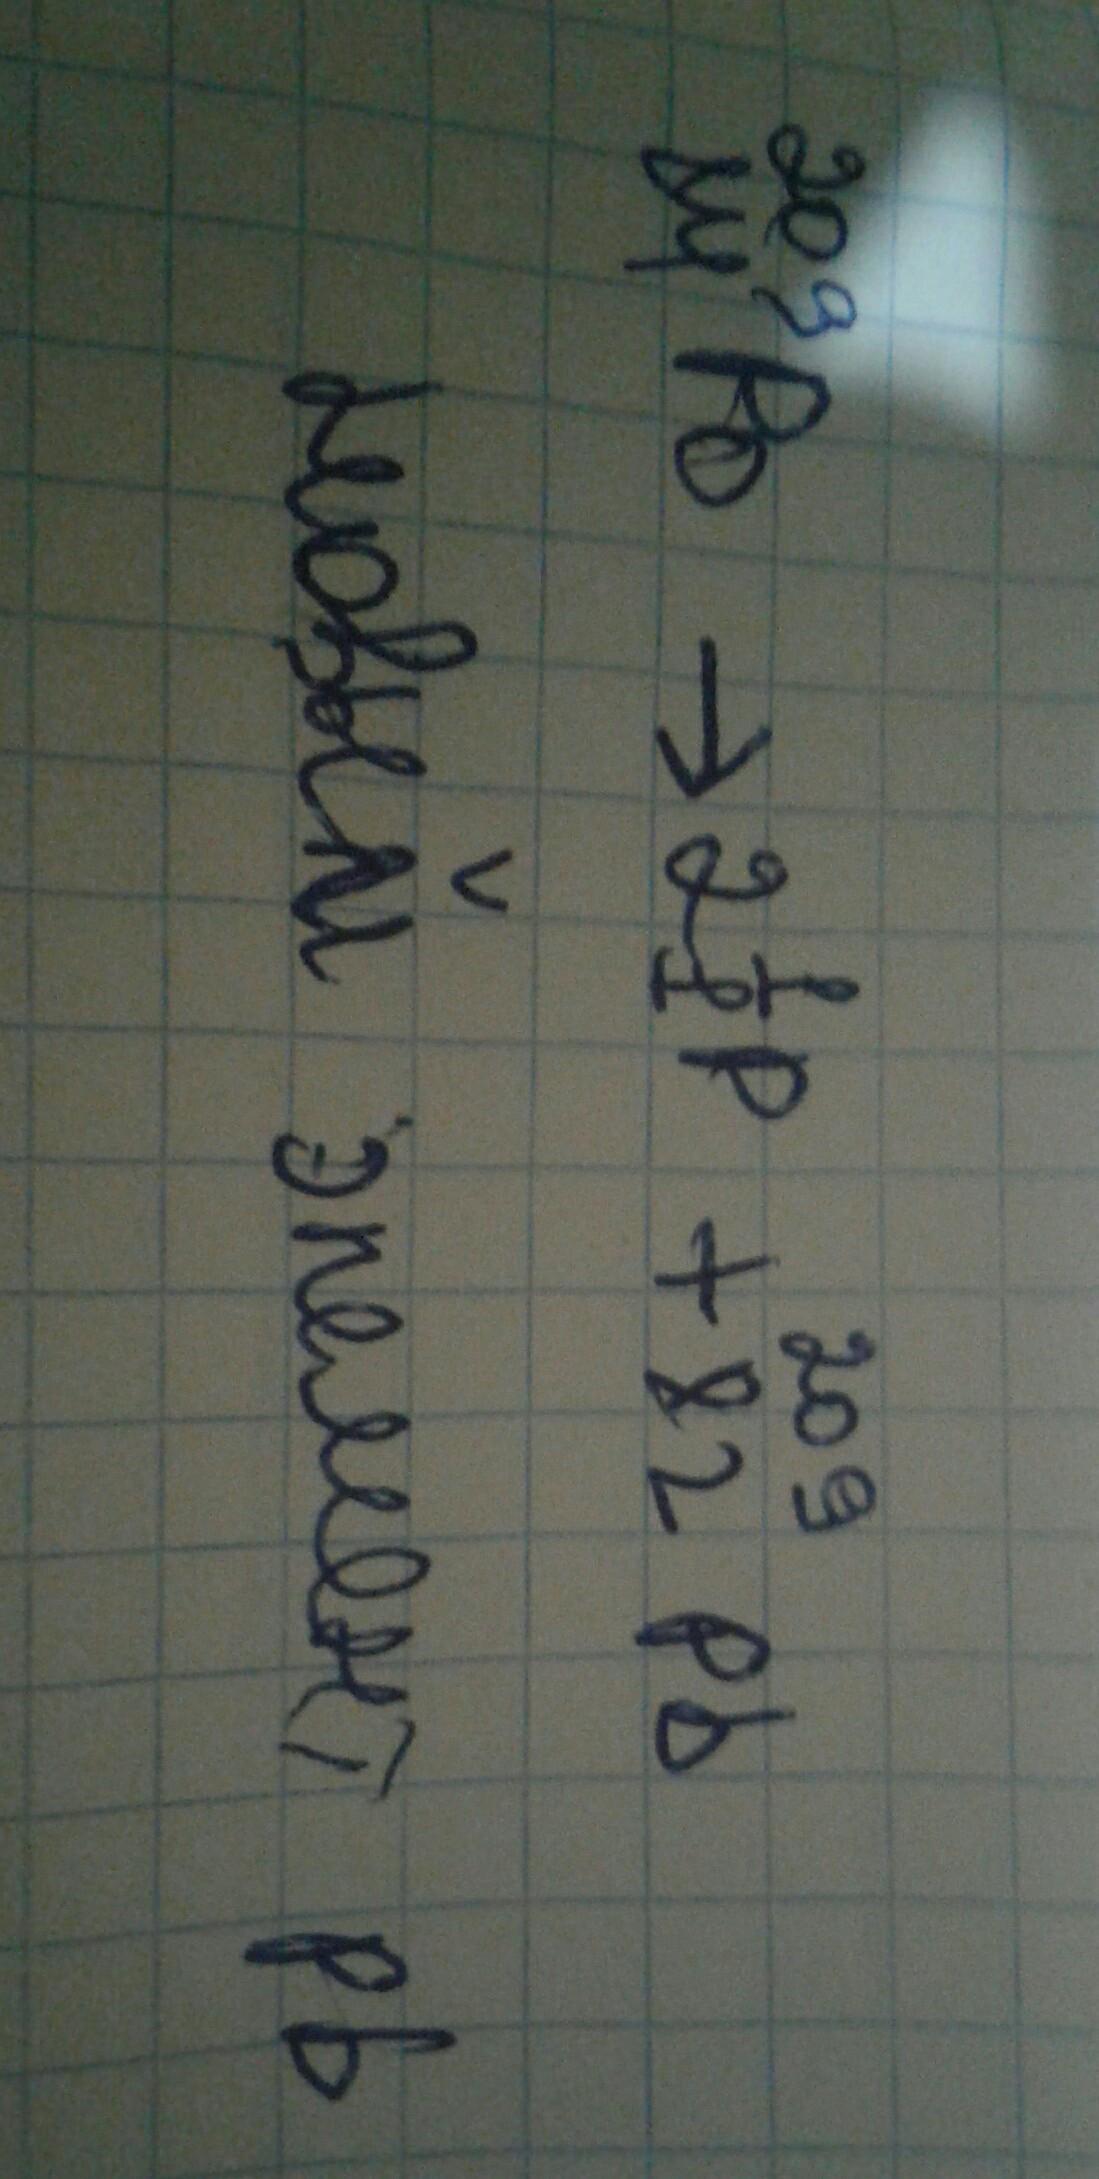 ²⁰⁹₈₄Po → 2¹₁p + ²⁰⁹₈₂Pb
новый элемент Pb